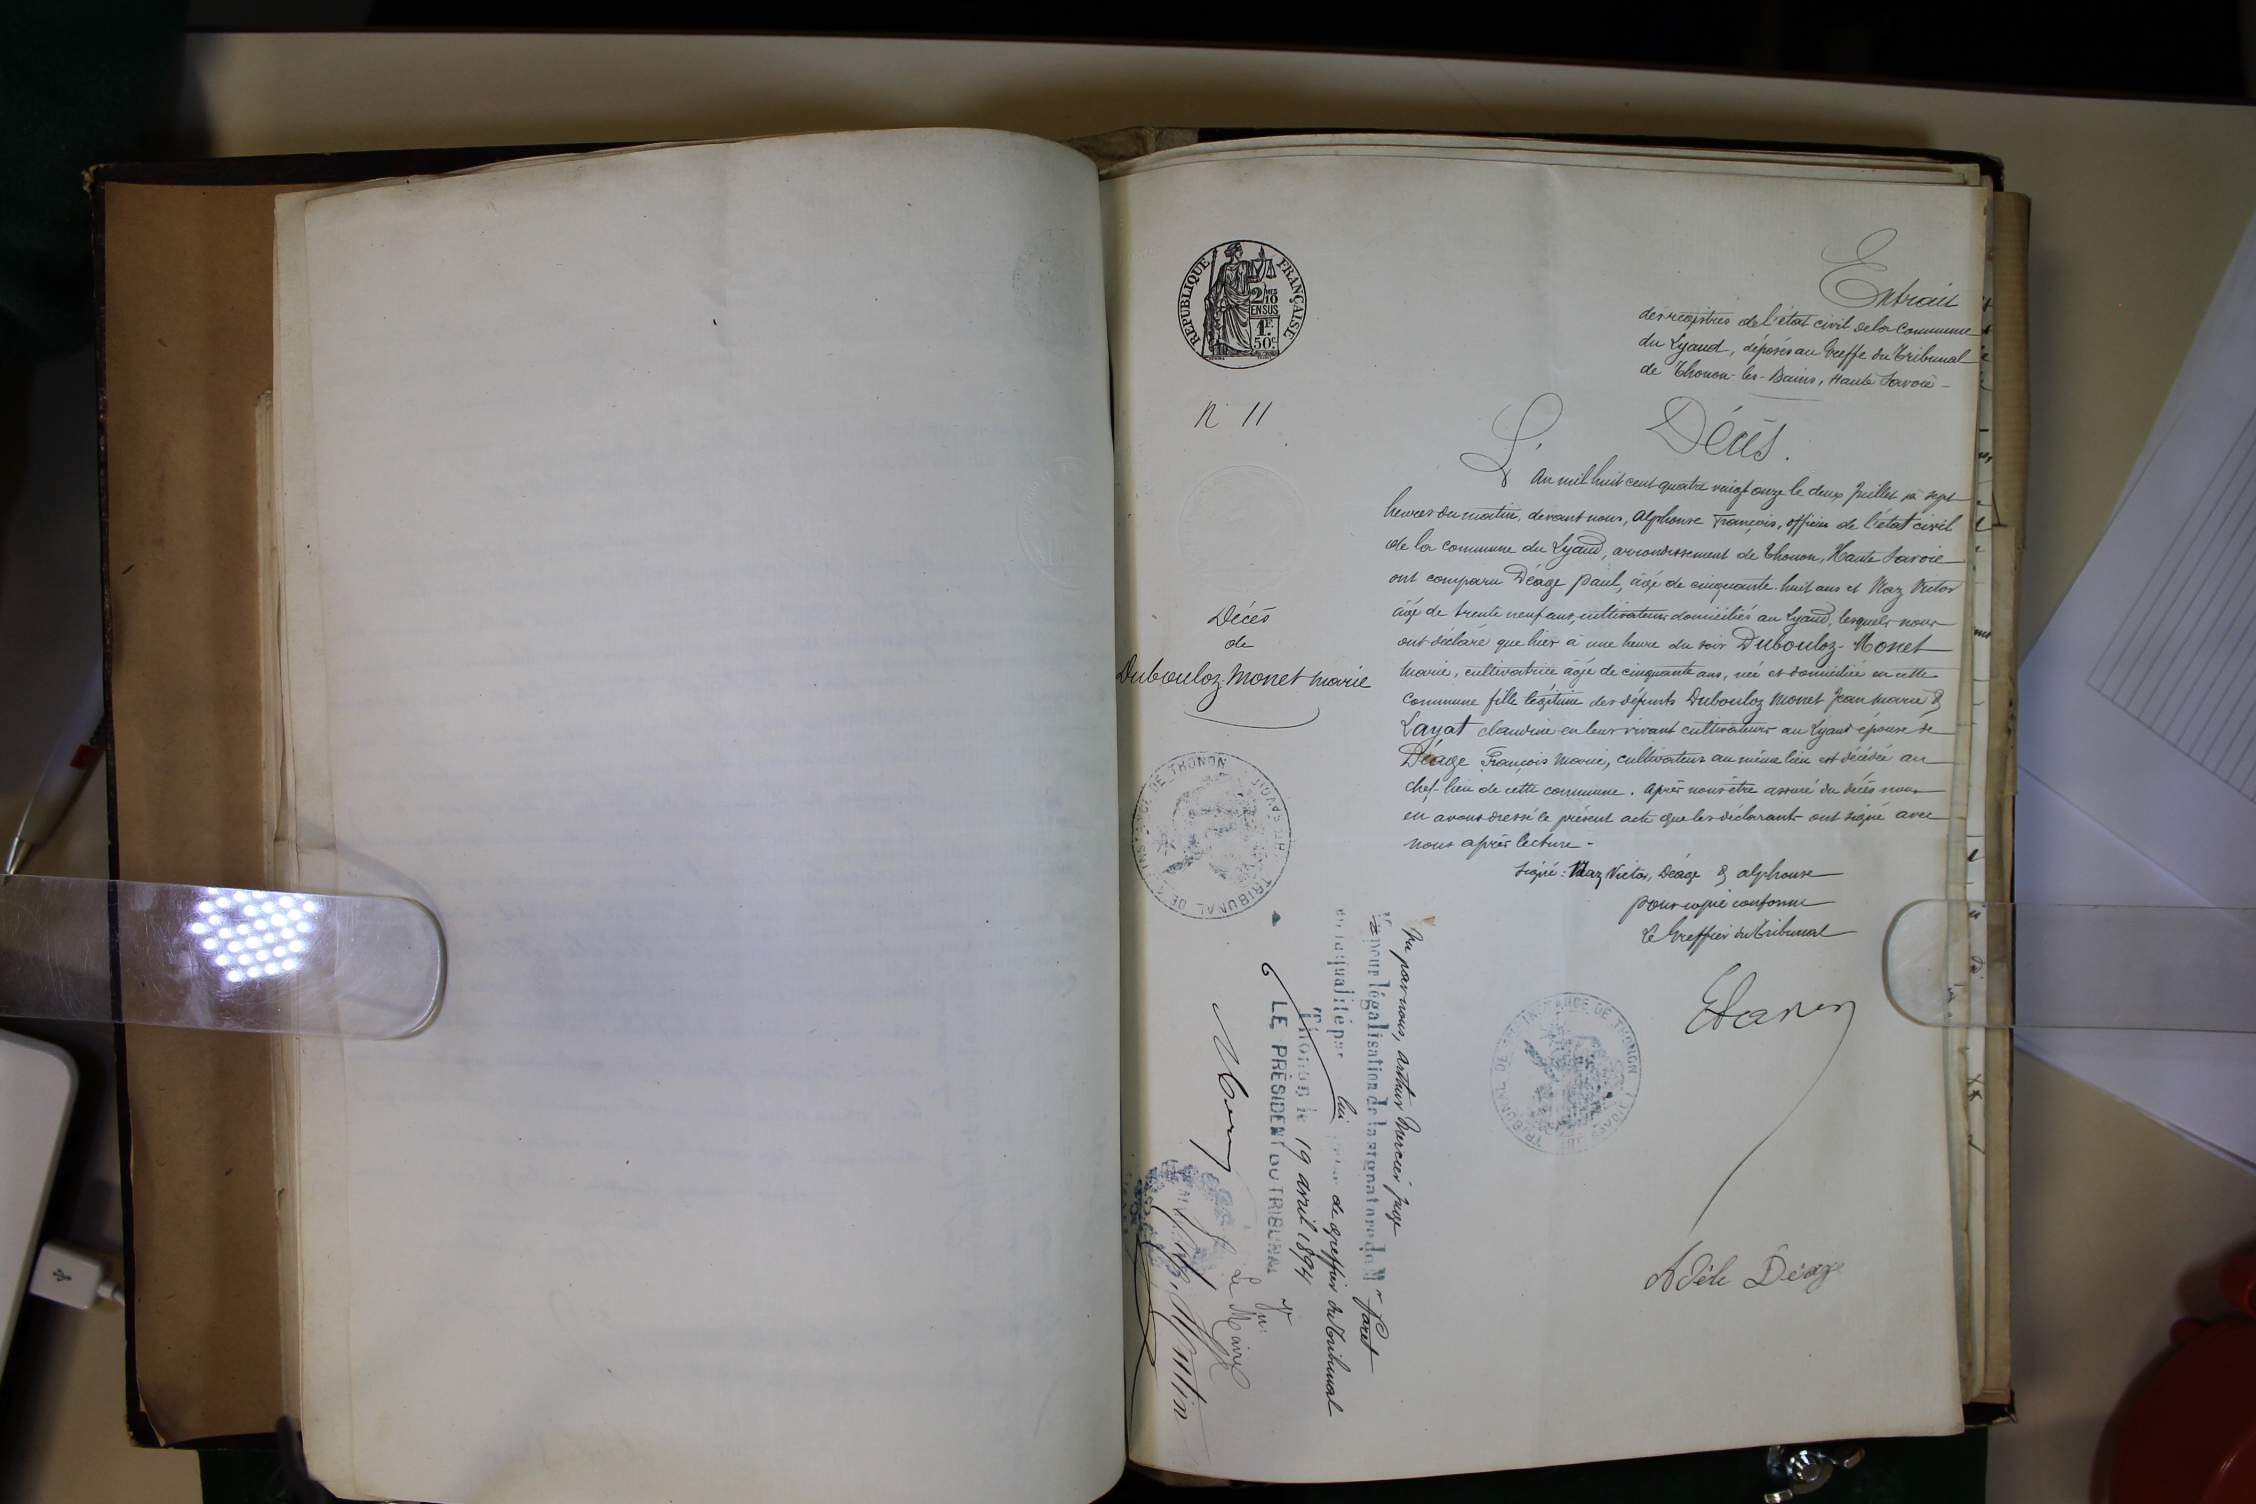 RÉPUBLIQUE FRANÇAISE
2/10
EN SUS
1F
50c
Extrait
des registres de l'état civil de la commune
du Lyaud, déposés au Greffe du Tribunal
de Thonon-les-Bains, Haute Savoie -
N 11
Décès.
L'An mil huit cent quatre vingt onze le deux Juillet à sept
heures du matin, devant nous, Alphonse François, officier de l'état civil
de la commune du Lyaud, arrondissement de Thonon, Haute Savoie
ont comparu Déage Paul, âgé de cinquante-huit ans et Naz Victor
âgé de trente neuf ans, cultivateurs domiciliés au Lyaud, lesquels nous
ont déclaré que hier à une heure du soir Dubouloz-Monet
Marie, cultivatrice âgée de cinquante ans, née et domiciliée en cette
commune fille légitime des défunts Dubouloz Monet Jean Marie &
Layat claudine en leur vivant cultivateurs au Lyaud épouse de
Déage François Marie, cultivateur au même lieu est décédée au
chef-lieu de cette commune. Après nous être assuré du décès nous
en avons dressé le présent acte que les déclarants ont signé avec
nous après lecture -
Signé: Naz Victor, Déage & alphonse
pour copie conforme
Le Greffier du Tribunal
Décès
de
Dubouloz-Monet Marie
TRIBUNAL DE 1RE INSTANCE DE THONON
TRIBUNAL DE 1RE INSTANCE DE THONON
Vu par nous, Arthur Mercier juge
pour légalisation de la signature de Mr
en sa qualité
de greffier du Tribunal
Thonon le 19 avril 1894
LE PRÉSIDENT DU TRIBUNAL
Vu:
Le Maire
Adèle Déage